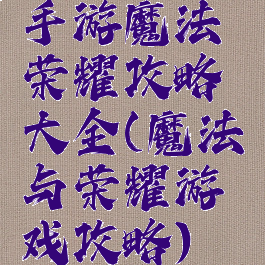 手游魔法
荣耀攻略
大全(魔法
与荣耀游
戏攻略)